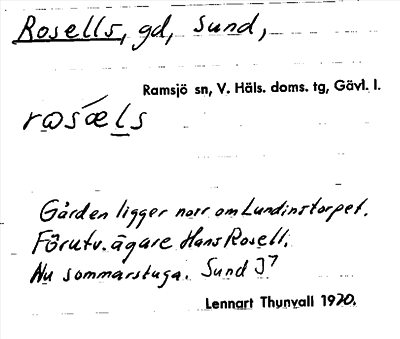 Rosells, gd, Sund,
Ramsjö sn, V. Häls. doms. tg, Gävl. l.
rωsǽls
Gården ligger norr om Lundinstorpet.
Förutv. ägare Hans Rosell.
Nu sommarstuga. Sund 3⁷
Lennart Thunvall 1970.